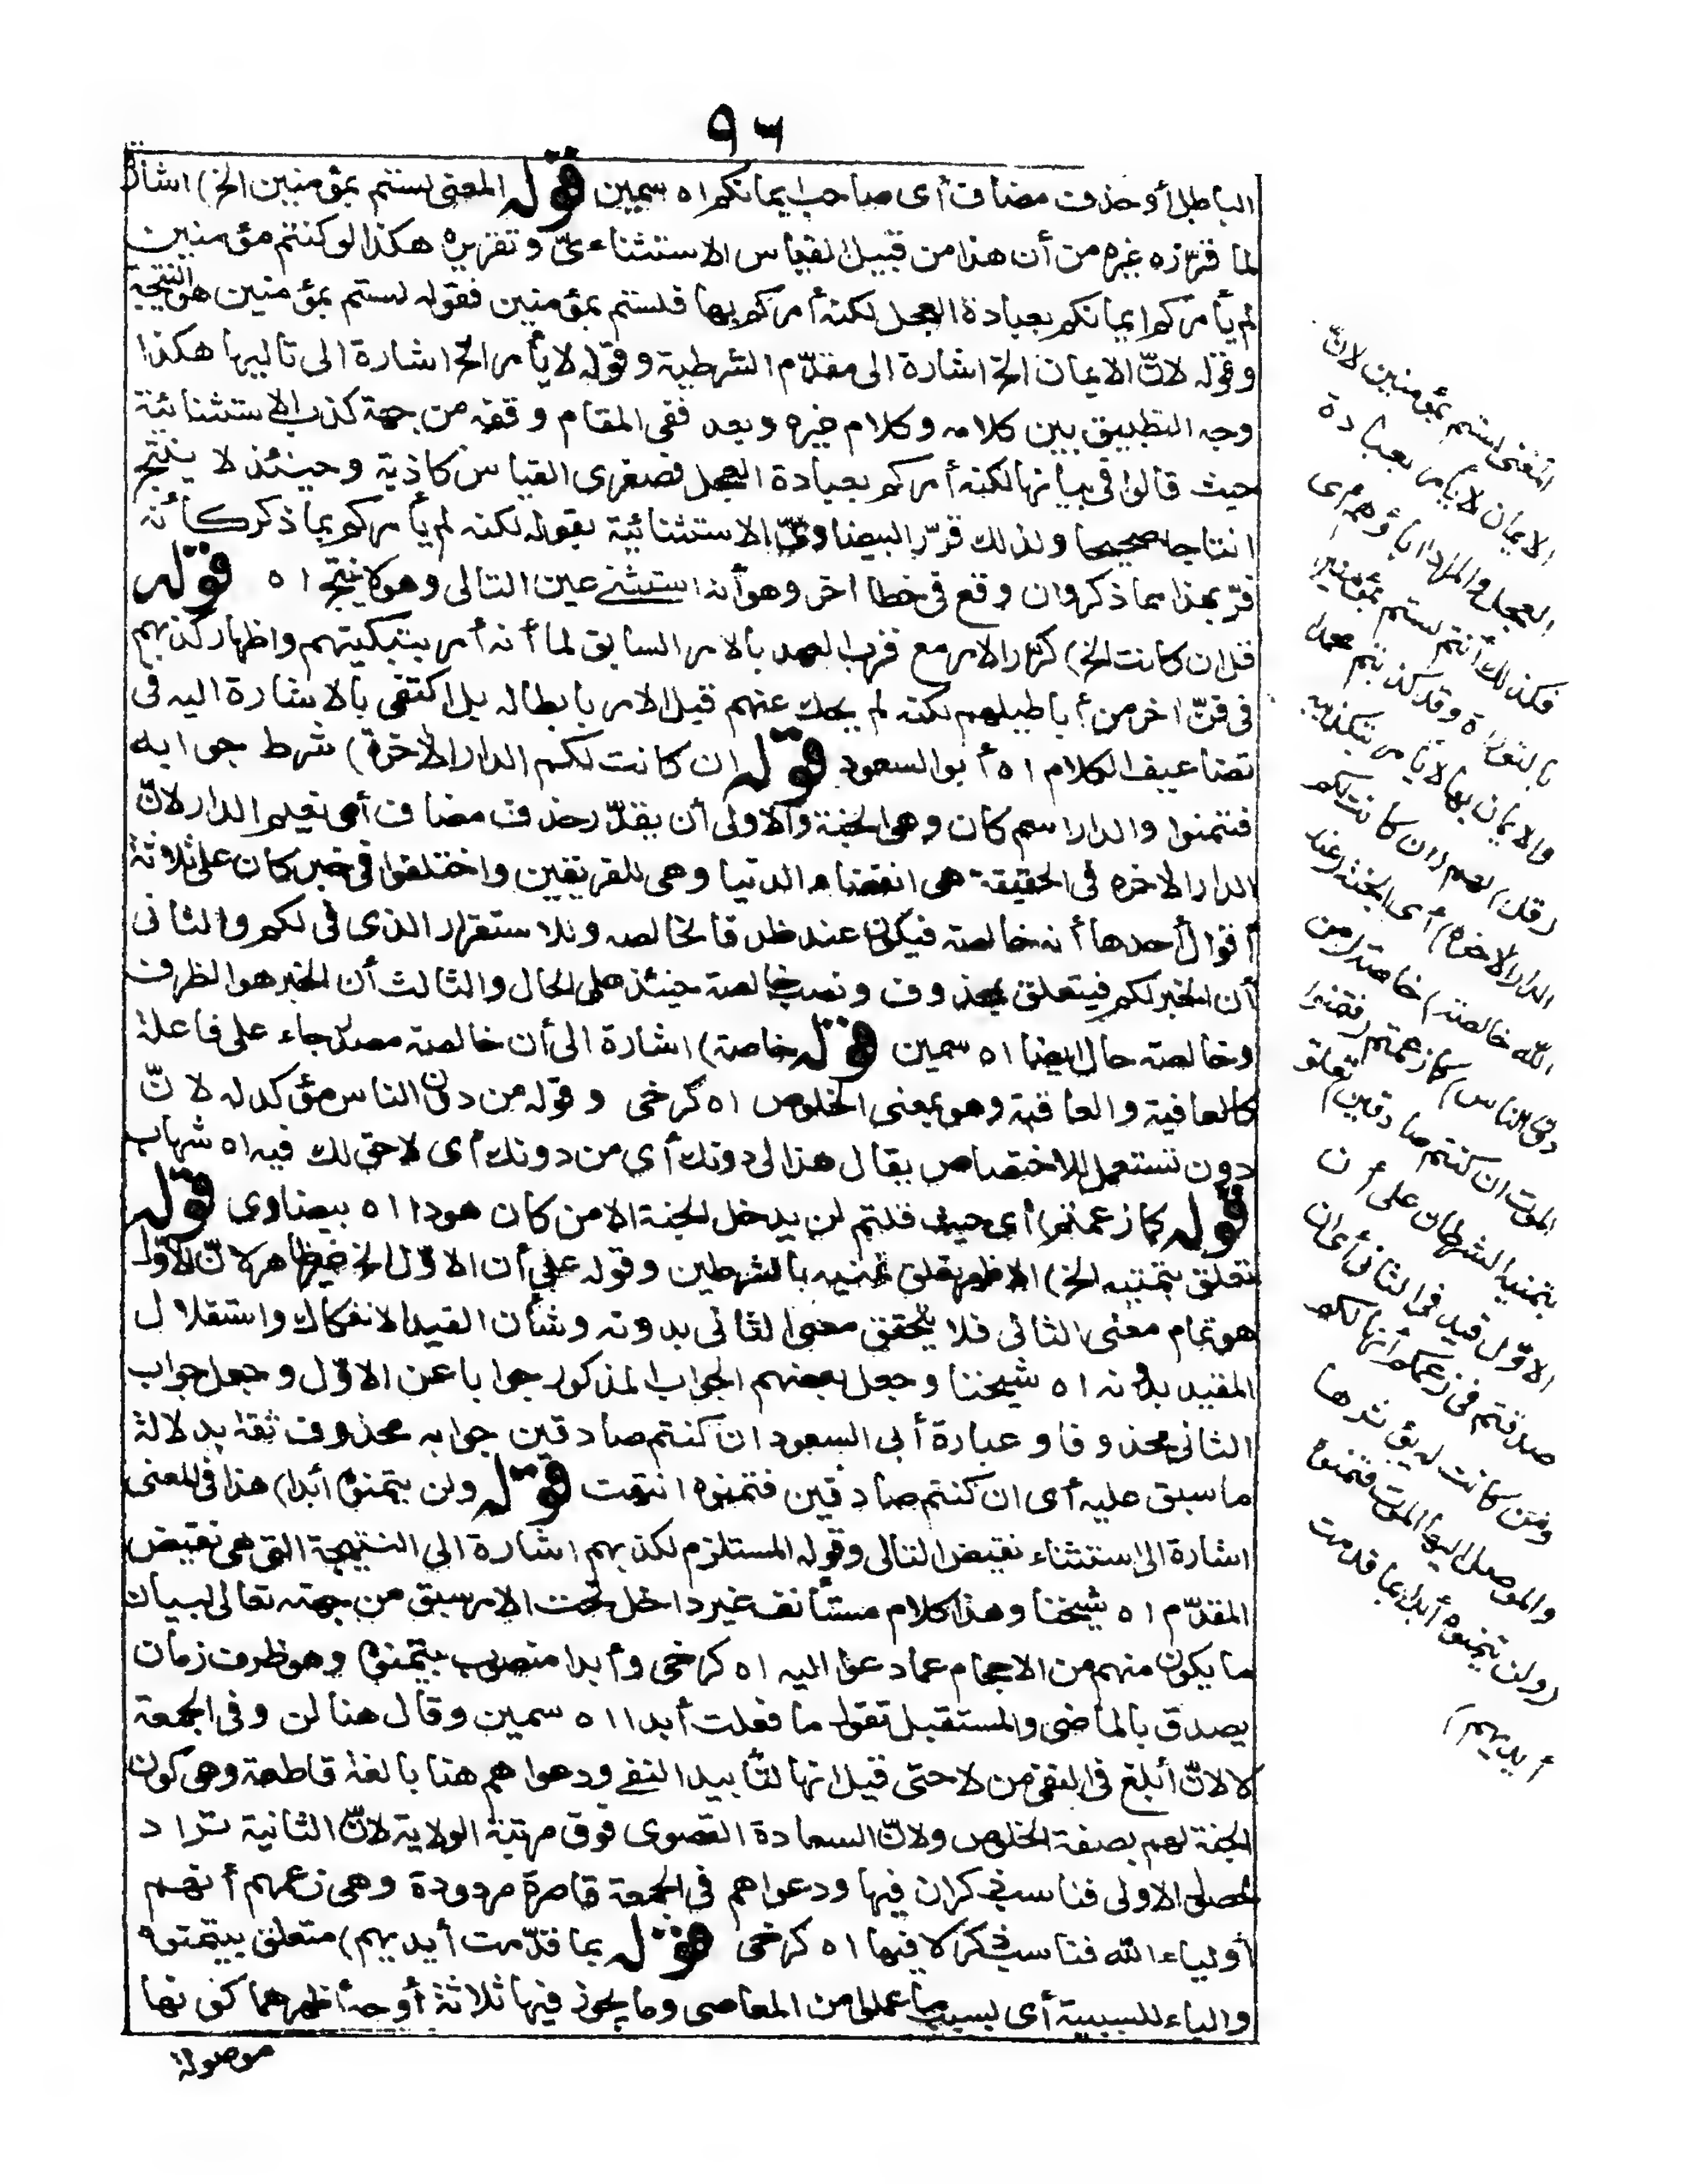 ٩٦
الباطل أو حذف مضاف أى صاحب ايمانكم اه سمين قوله المعنى لستم بمؤمنين الخ) اشار
لما قرّره غيره من أن هذا من قبيل القياس الاستثناءىّ وتقريره هكذا لو كنتم مؤمنين
لم يأمركم ايمانكم بعبادة العجل لكنه أمركم بها فلستم بمؤمنين فقوله لستم بمؤمنين هو النتيجة
وقوله لانّ الايمان الخ اشارة الى مقدّم الشرطية وقوله لا يأمر الخ اشارة الى تاليها هكذا
وجه التطبيق بين كلامه وكلام غيره وبعد ففى المقام وقفه من جهة كذب الاستثنائية
حيث قالوا فى بيانها لكنه أمركم بعبادة العجل فصغرى القياس كاذبة وحينئذ لا ينتج
انتاجا صحيحا ولذلك قرّر البيضاوىّ الاستثنائية بقوله لكنه لم يأمركم بما ذكر كأنه
فرّ بهذا مما ذكر وان وقع فى خطا اخر وهو أنه استثنى عين التالى وهو لا ينتج اه قوله
قل ان كانت الخ) كرّر الامر مع قرب العهد بالامر السابق لما أنه أمر بتبكيتهم واظهار كذبهم
فى فنّ اخر من أباطيلهم لكنه لم يحك عنهم قبل الامر بابطاله بل اكتفى بالاشارة اليه فى
تضاعيف الكلام اه أبو السعود قوله ان كانت لكم الدار الاخرة) شرط جوابه
فتمنوا والدار اسم كان وهى الجنة والاولى أن يقدّر حذف مضاف أى نعيم الدار لانّ
الدار الاخره فى الحقيقة هى انقضاء الدنيا وهى للفريقين واختلفوا فى خبر كان على ثلاثة
أقوال أحدها أنه خالصة فيكون عند ظرفا لخالصه وللاستقرار الذى فى لكم والثانى
أن الخبر لكم فيتعلق بمحذوف ونصب خالصة حينئذ على الحال والثالث أن الخبر هو الظرف
وخالصة حال ايضا اه سمين قوله خاصة) اشارة الى أن خالصة مصدر جاء على فاعلة
كالعافية والعاقبة وهو بمعنى الخلوص اه كرخى وقوله من دون الناس مؤكد له لانّ
دون تستعمل للاختصاص يقال هذا لى دونك أى من دونك أى لا حق لك فيه اه شهاب
قوله كما زعمتم) أى حيث قلتم لن يدخل الجنة الا من كان هودا اه بيضاوى قوله
تعلق بتمنيه الخ) الاظهر تعلق تمنيه بالشرطين وقوله على أن الاوّل الخ غير ظاهر لانّ الاوّل
هو تمام معنى الثانى فلا يتحقق معنى الثانى بدونه وشأن القيد الانفكاك واستقلال
المقيد بدونه اه شيخنا وجعل بعضهم الجواب المذكور جوابا عن الاوّل وجعل جواب
الثانى محذوفا وعبارة أبى السعود ان كنتم صادقين جوابه محذوف ثقة بدلالة
ما سبق عليه أى ان كنتم صادقين فتمنوه انتهت قوله ولن يتمنوه أبدا) هذا فى المعنى
اشارة الى استثناء نقيض التالى وقوله المستلزم لكذبهم اشارة الى النتيجة التى هى نقيض
المقدّم اه شيخنا وهذا كلام مستأنف غير داخل تحت الامر سبق من جهته تعالى لبيان
ما يكون منهم من الاحجام عما دعوا اليه اه كرخى وأبدا منصوب بيتمنوه وهو ظرف زمان
يصدق بالماضى والمستقبل تقول ما فعلت أبدا اه سمين وقال هنا لن وفى الجمعة
لا لانّ أبلغ فى النفى من لا حتى قيل انها لتأبيد النفى ودعواهم هنا بالغة قاطعة وهى كون
الجنة لهم بصفة الخلوص ولانّ السعادة القصوى فوق مرتبة الولاية لانّ الثانية تراد
لحصول الاولى فناسب ذكر لن فيها ودعواهم فى الجمعة قاصرة مردودة وهى زعمهم أنهم
أولياء الله فناسب ذكر لا فيها اه كرخى قوله بما قدّمت أيديهم) متعلق بيتمنوه
والباء للسببية أى بسبب ما عملوا من المعاصى وما يجوز فيها ثلاثة أوجه أظهرهما كونها
موصولة
المعنى لستم بمؤمنين لانّ
الايمان لا يأمر بعبادة
العجل والمراد اباؤهم أى
فكذلك أنتم لستم بمؤمنين
بالتوراة وقد كذبتم محمدا
والايمان بها لا يأمر بتكذيبه
(قل) لهم (ان كانت لكم
الدار الاخرة) أى الجنة (عند
الله خالصة) خاصة (من
دون الناس) كما زعمتم (فتمنوا
الموت ان كنتم صادقين) تعلق
بتمنيه الشرطان على أن
الاوّل قيد فى الثانى أى ان
صدقتم فى زعمكم أنها لكم
ومن كانت له يؤثرها
والموصل اليها الموت فتمنوه
(ولن يتمنوه أبدا بما قدمت
أيديهم)